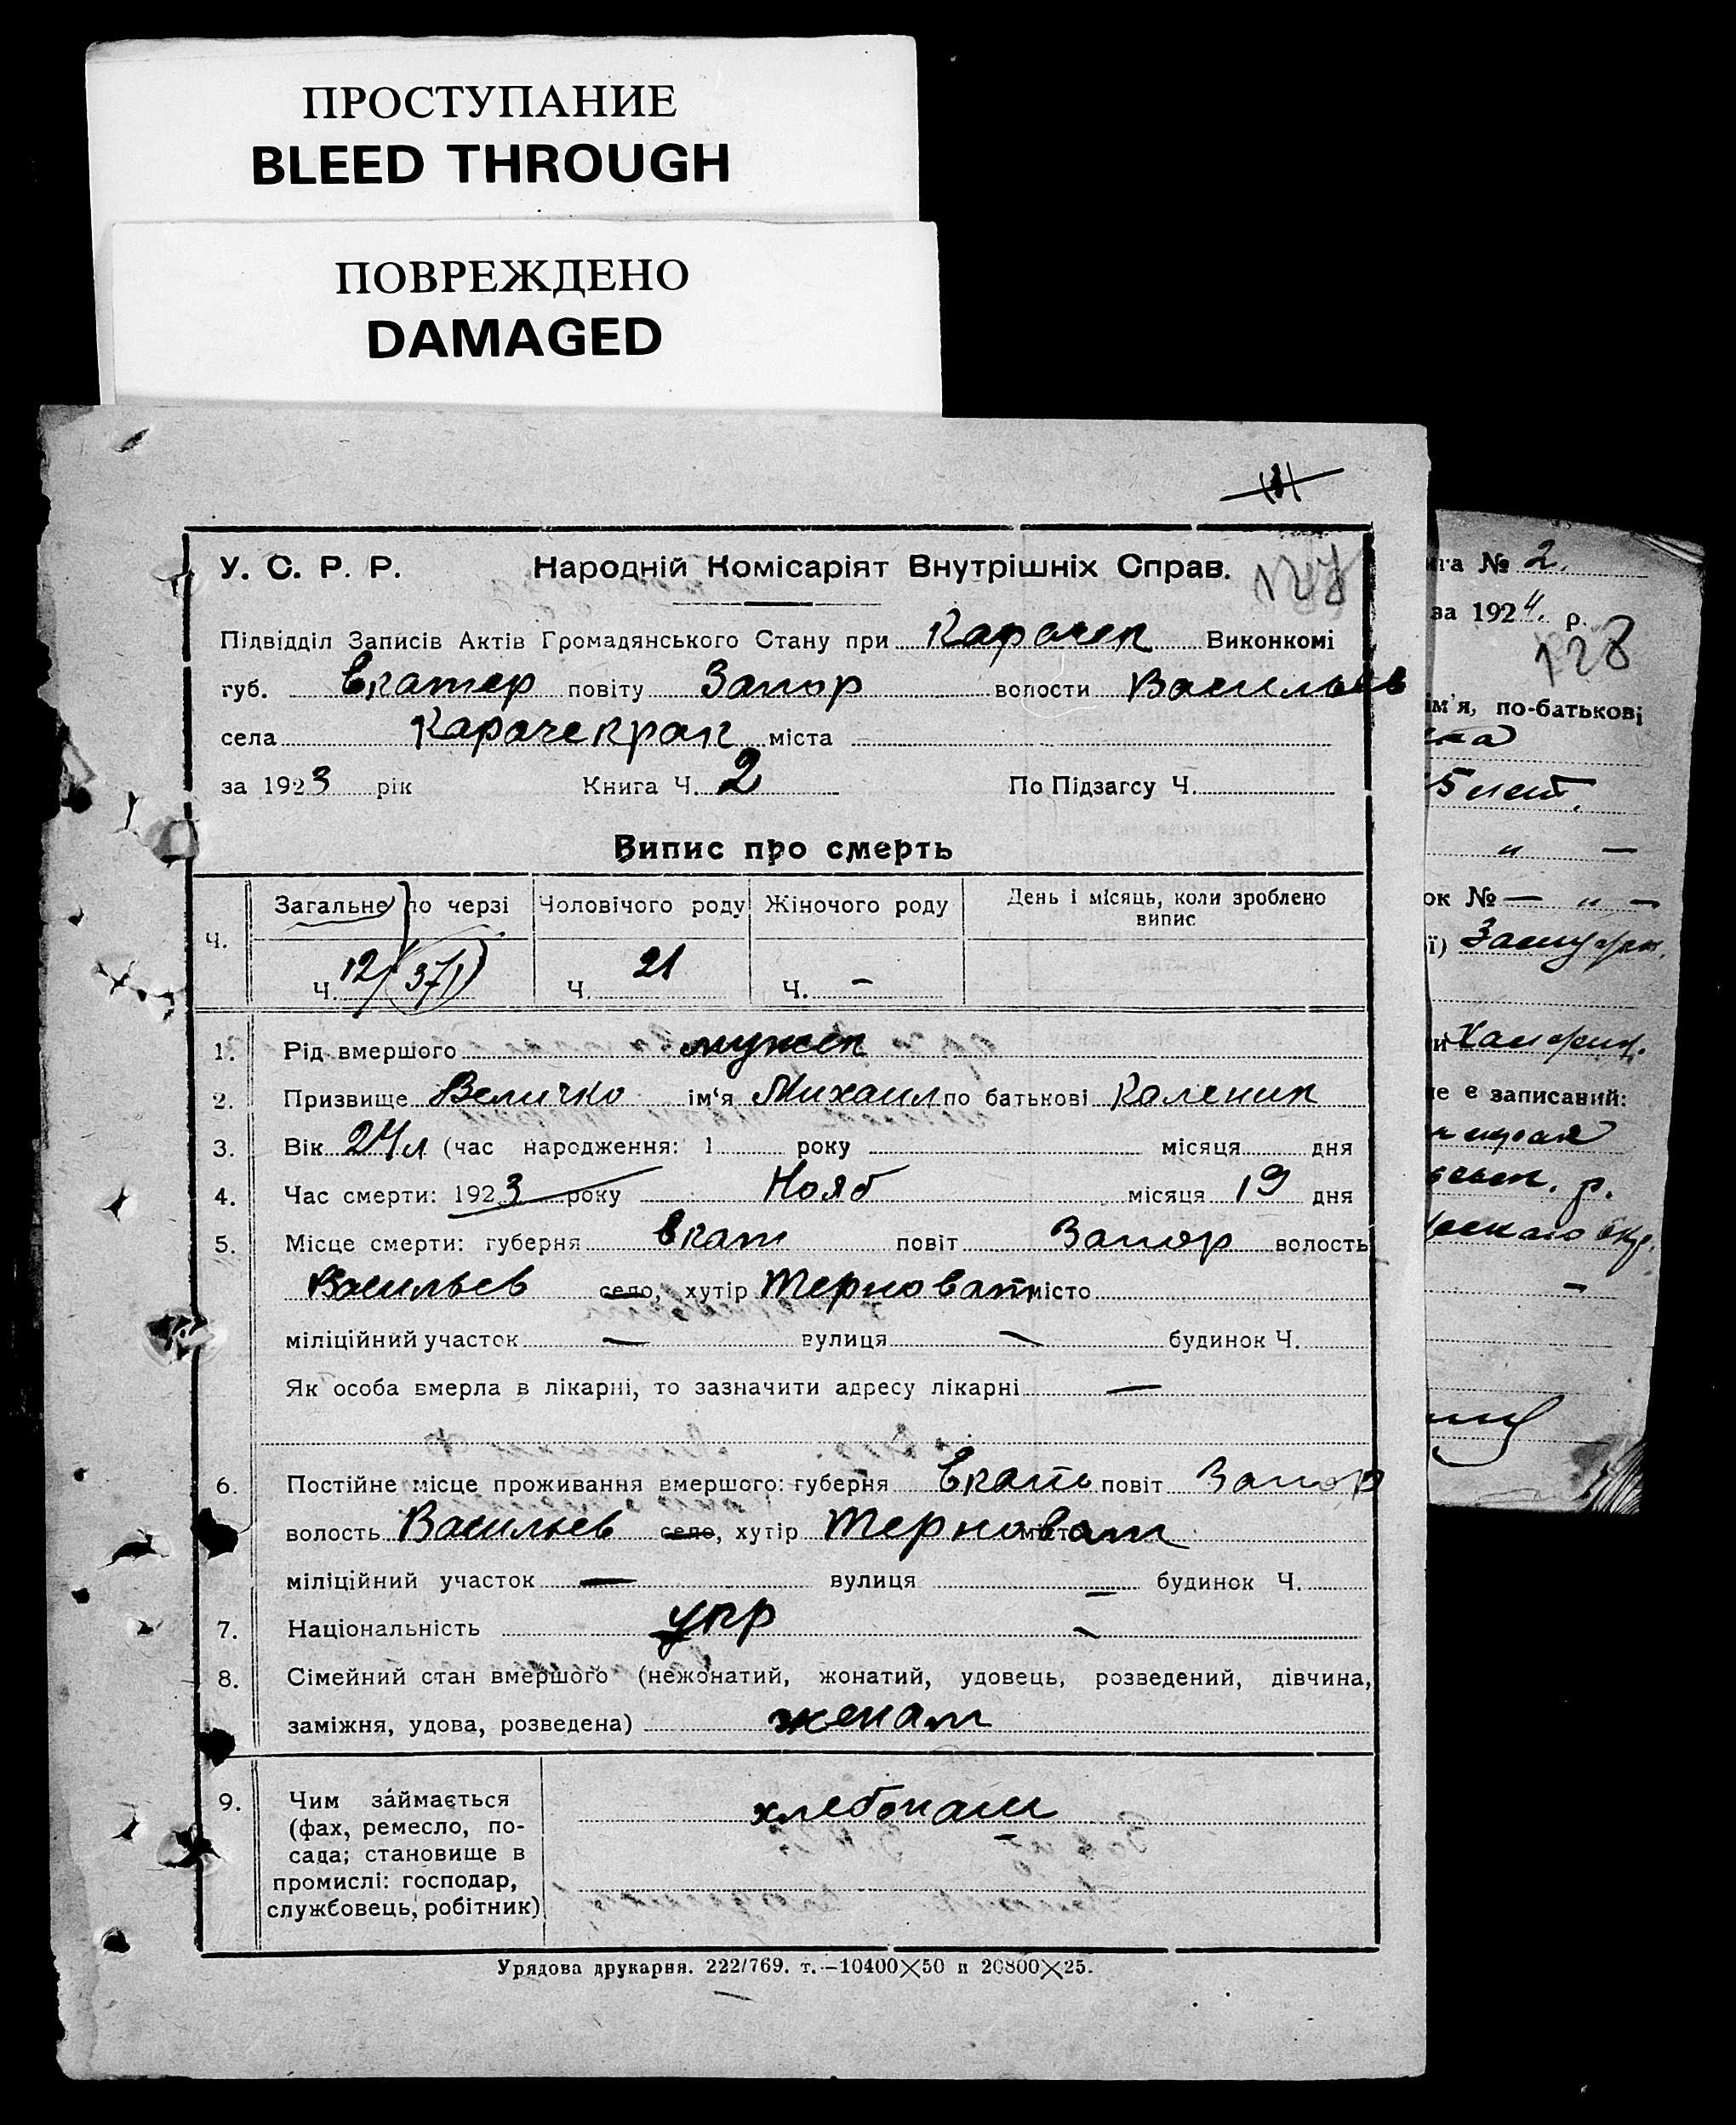 ПРОСТУПАНИЕ
BLEED THROUGH
ПОВРЕЖДЕНО
DAMAGED
У. С. Р. Р. Народній Комісаріят Внутрішніх Справ. 127
Підвідділ Записів Актів Громадянського Стану при Карачек Виконкомі
губ. Екатер повіту Запор волости Васильев
села Карачекрак міста
за 1923 рік Книга Ч. 2 По Підзагсу Ч.
Випис про смерть
Ч. Загальне по черзі Чоловічого роду Жіночого роду День і місяць, коли зроблено
випис
Ч. 12/(371) Ч. 21 Ч. –
1. Рід вмершого мужск
2. Призвище Величко ім'я Михаил по батькові Каленик
3. Вік 24 л (час народження: 1 року місяця дня
4. Час смерти: 1923 року Нояб місяця 19 дня
5. Місце смерти: губерня Екат повіт Запор волость
Васильев село, хутір Терноват місто
міліційний участок — вулиця — будинок Ч.
Як особа вмерла в лікарні, то зазначити адресу лікарні —
6. Постійне місце проживання вмершого: губерня Екат повіт Запор
волость Васильев село, хутір Терноват місто
міліційний участок — вулиця – будинок Ч.
7. Національність укр
8. Сімейний стан вмершого (нежонатий, жонатий, удовець, розведений, дівчина,
заміжня, удова, розведена) женат
9. Чим займається
(фах, ремесло, по-
сада; становище в
промислі: господар,
службовець, робітник)
хлебопаш
Урядова друкарня. 222/769. т.—10400×50 и 20800×25.
№ 2.
за 1924 р.
128
ім'я, по-батькові
5 лет.
„ —
ок № — „ —
є записаний:
р.